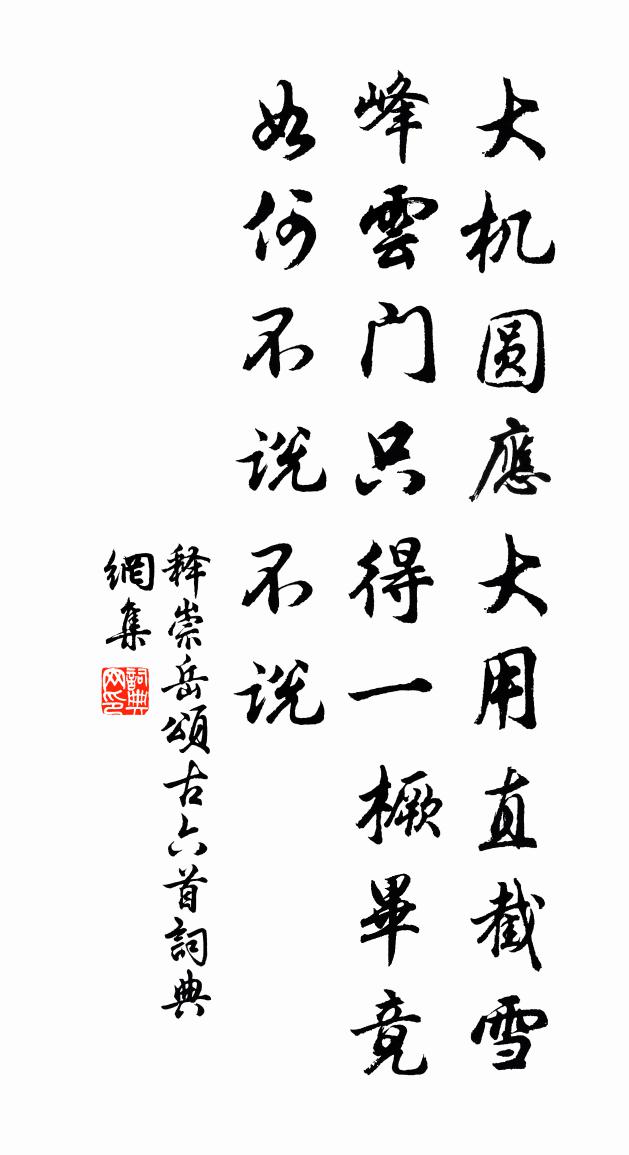 大机圆應大用直截雪
峰雲门只得一橛畢竟
如何不说不说
释崇岳頌古六首詞典
網集
詞典
网印